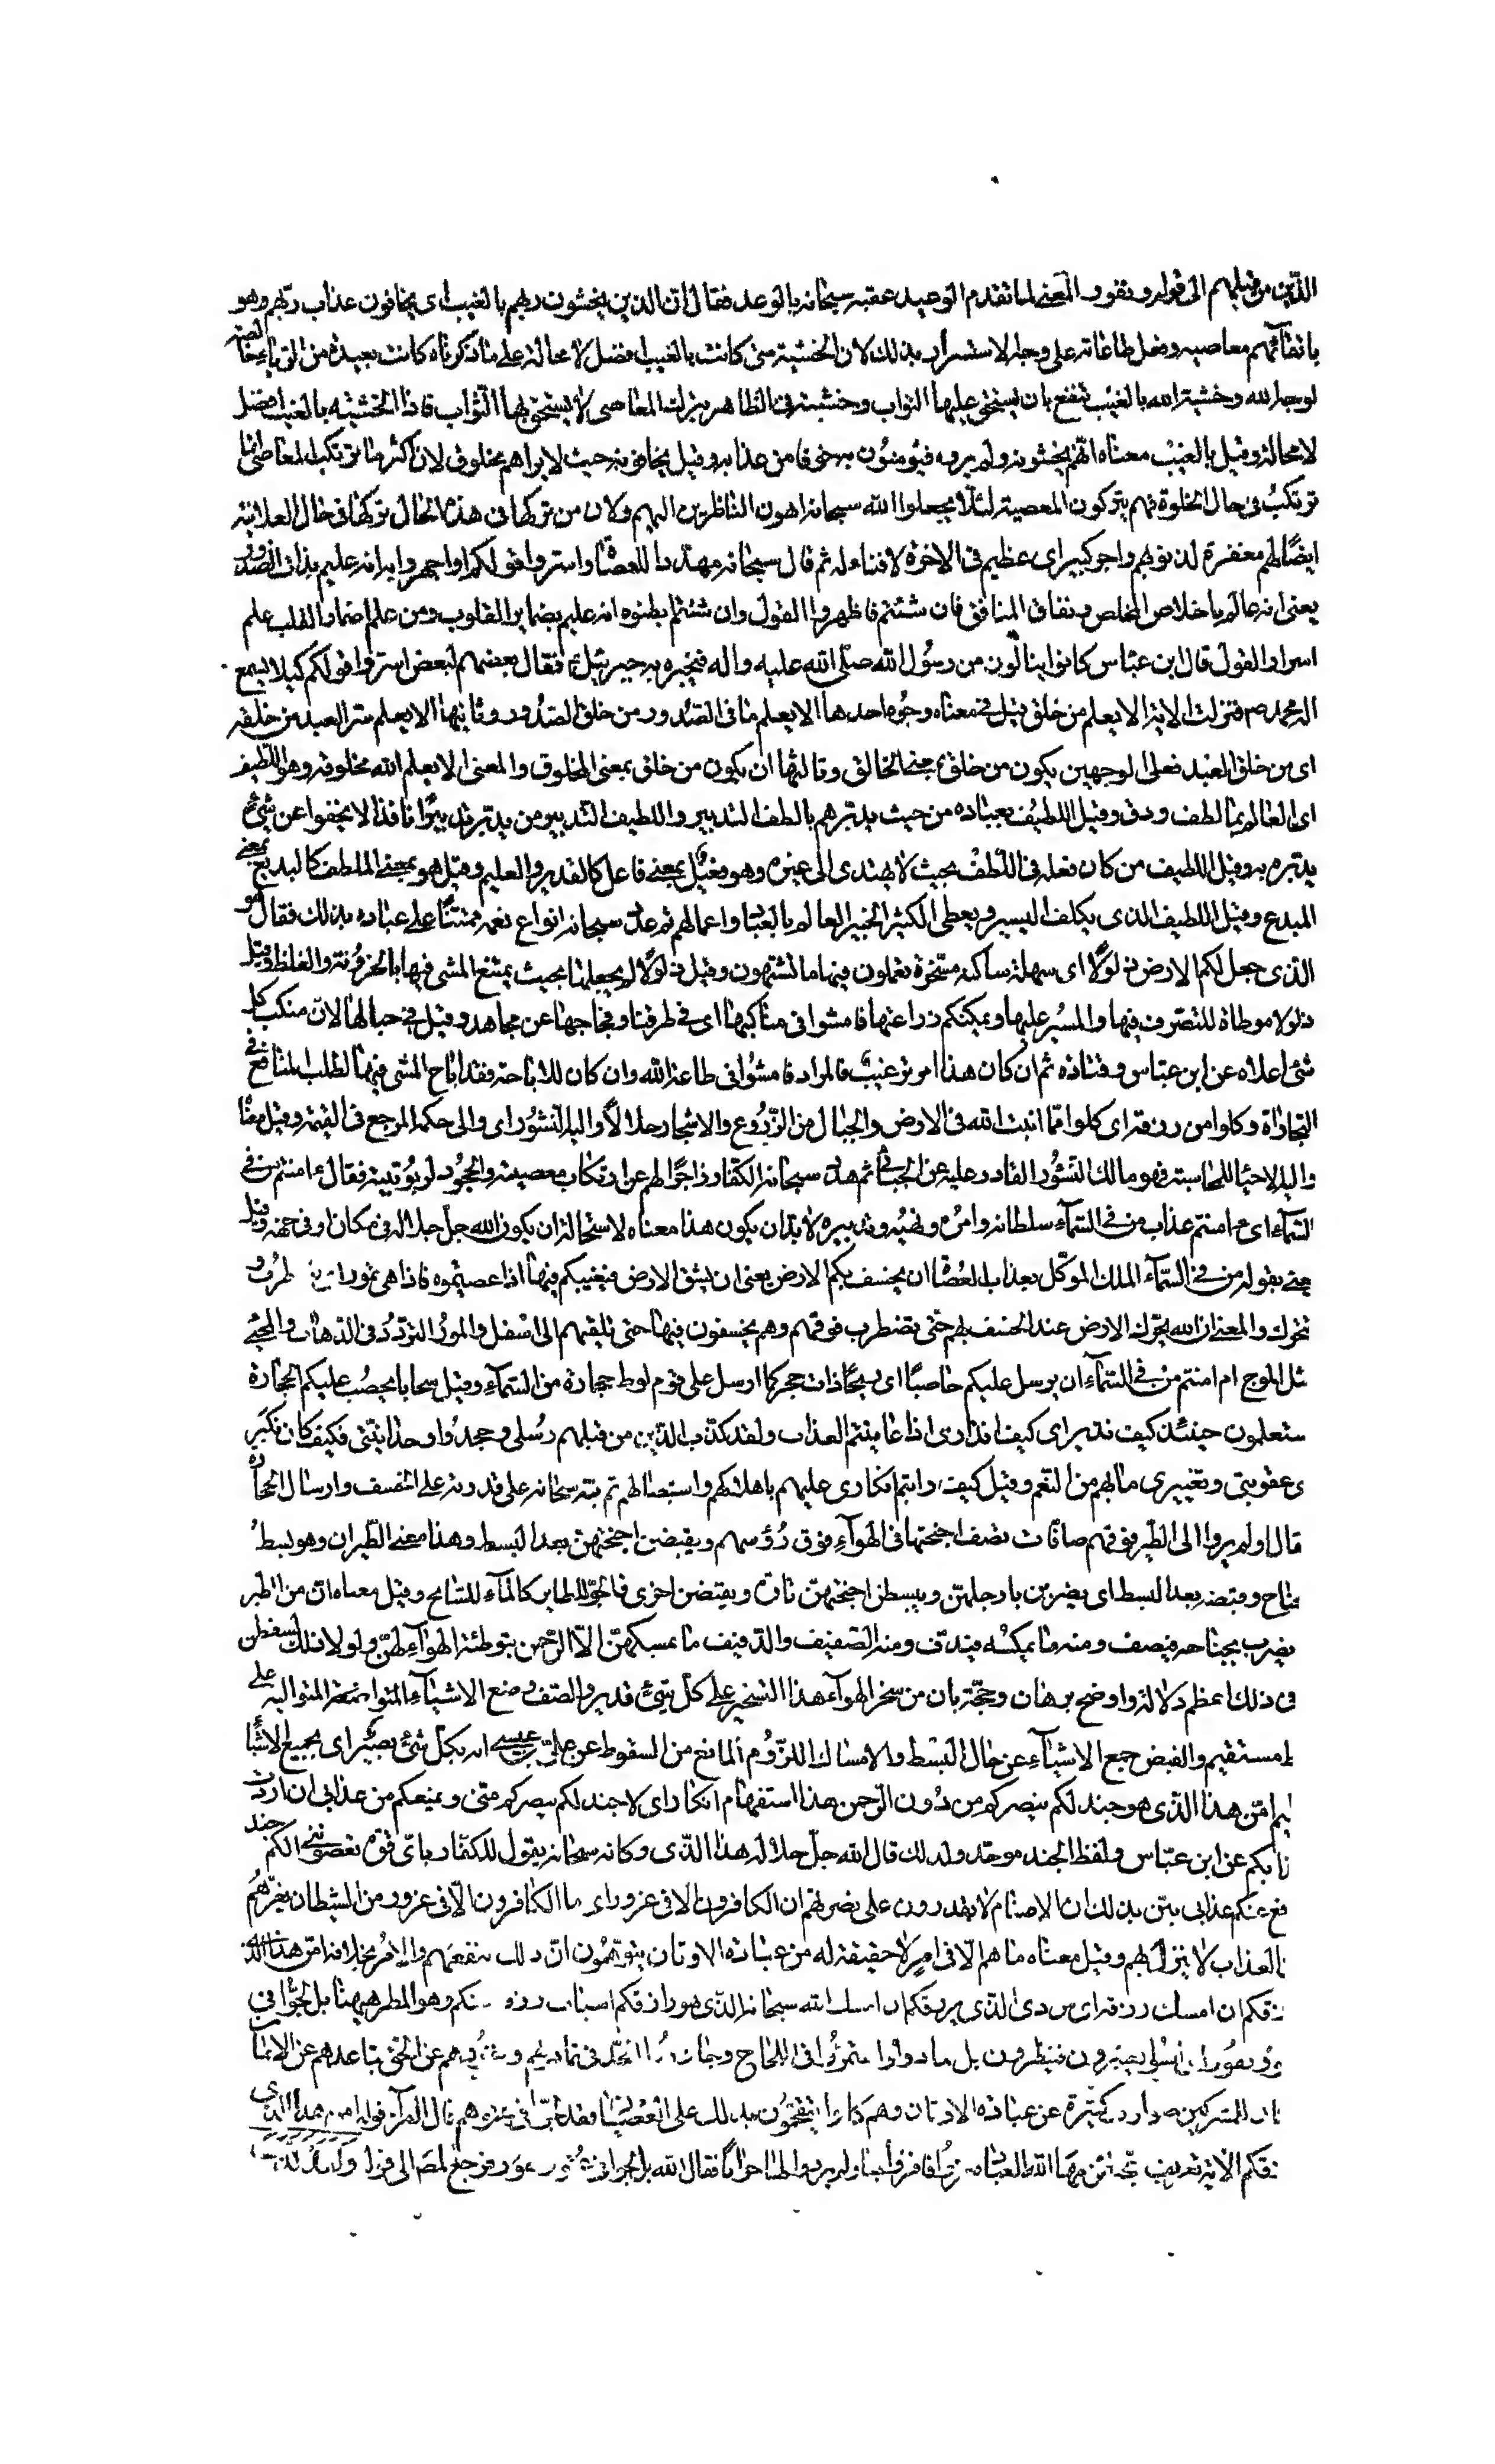 الذين من قبلهم الى قوله ونفور المعنى لما تقدم الوعيد عقبه سبحانه بالوعد فقال ان الذين يخشون ربهم بالغيب اى يخافون عذاب ربهم وهو
باتقائهم معاصيه وفعل طاعاته على وجه الاستسرار بذلك لان الخشية متى كانت بالغيب افضل لا محالة على ما ذكرناه كانت بعيدة من الرياء خالصة
لوجه الله وخشية الله بالغيب تنفع بان يستحق عليها الثواب وخشيته فى الظاهر بترك المعاصى لا يستحق بها الثواب فاذا الخشية بالغيب افضل
لا محالة وقيل بالغيب معناه انهم يخشونه ولم يروه فيؤمنون به خوفا من عذابه وقيل يخافونه حيث لا يراهم مخلوق لان اكثر ما ترتكب المعاصى انما
ترتكب فى حال الخلوة فهم يتركون المعصية لئلا يجعلوا الله سبحانه اهون الناظرين اليهم ولان من تركها فى هذه الحال تركها فى حال العلانية
ايضا لهم مغفرة لذنوبهم واجر كبير اى عظيم فى الاخرة لا فناء له ثم قال سبحانه مهددا للعصاة واسروا قولكم او اجهروا به انه عليم بذات الصدور
يعنى انه عالم باخلاص المخلص ونفاق المنافق فان شئتم فاظهروا القول وان شئتم ابطنوه انه عليم بضماير القلوب ومن علم اضمار القلب علم
اسرار القول قال ابن عباس كانوا ينالون من رسول الله صلى الله عليه واله فيخبره به جبرئيل فقال بعضهم لبعض اسروا قولكم كيلا يسمع
اله محمد ص فنزلت الاية الا يعلم من خلق قيل فى معناه وجوه احدها الا يعلم ما فى الصدور من خلق الصدور وثانيها الا يعلم سر العبد من خلقه
اى من خلق العبد فعلى الوجهين يكون من خلق بمعنى الخالق وثالثها ان يكون من خلق بمعنى المخلوق والمعنى الا يعلم الله مخلوقه وهو اللطيف
اى العالم بما لطف ودق وقيل اللطيف بعباده من حيث يدبرهم بالطف التدبير واللطيف التدبير من يدبر تدبيرا نافذا لا يجفوا عن شئ
يدبره به وقيل اللطيف من كان فعله فى اللطف بحيث لا يهتدى الى غيره وهو فعيل بمعنى فاعل كالقدير والعليم وقيل هو بمعنى الملطف كالبديع بمعنى
المبدع وقيل اللطيف الذى يكلف اليسير ويعطى الكثير الخبير العالم بالعباد واعمالهم ثم عدد سبحانه انواع نعمه ممتنا على عباده بذلك فقال هو
الذى جعل لكم الارض ذلولا اى سهلة ساكنة مسخرة تعملون فيها ما تشتهون وقيل ذلولا لم يجعلها بحيث يمتنع المشى فيها بالحزونة والغلظ وقيل
ذلولا موطاة للتصرف فيها والمسير عليها ويمكنكم زراعتها فامشوا فى مناكبها اى فى طرقها وفجاجها عن مجاهد وقيل فى جبالها لان منكب كل
شئ اعلاه عن ابن عباس وقتادة ثم ان كان هذا امر ترغيب فالمراد فامشوا فى طاعة الله وان كان للاباحة فقد اباح المشى فيها لطلب المنافع فى
التجارات وكلوا من رزقه اى كلوا مما انبت الله فى الارض والجبال من الزروع والاشجار حلالا واليه النشور اى والى حكمه المرجع فى القيمة وقيل معناه
واليه الاحياء للمحاسبة فهو مالك النشور القادر عليه عن الجبائى ثم هدد سبحانه الكفار زاجرا لهم عن ارتكاب معصيته والجحود لربوبيته فقال ءامنتم من فى
السماء اى ءامنتم عذاب من فى السماء سلطانه وامره ونهيه وتدبيره لا بد ان يكون هذا معناه لاستحالة ان يكون الله جل جلاله فى مكان او فى جهة وقيل
يعنى بقوله من فى السماء الملك الموكل بعذاب العصاة ان يخسف بكم الارض يعنى ان يشق الارض فيغيبكم فيها اذا عصيتموه فاذا هى تمور اى
تتحرك والمعنى ان الله يحرك الارض عند الخسف بهم حتى تضطرب فوقهم وهم يخسفون فيها حتى تلقيهم الى اسفل والمور التردد فى الذهاب والمجئ
مثل الموج ام امنتم من فى السماء ان يرسل عليكم حاصبا اى ريحا ذات حجر كما ارسل على قوم لوط حجارة من السماء وقيل سحابا يحصب عليكم الحجارة
ستعلمون حينئذ كيف نذير اى كيف انذارى اذا عاينتم العذاب ولقد كذب الذين من قبلهم رسلى وجحدوا وحدانيتى فكيف كان نكير
ى عقوبتى وتغييرى ما بهم من النعم وقيل كيف رايتم انكارى عليهم باهلاكهم واستيصالهم ثم نبه سبحانه على قدرته على الخسف وارسال الحجارة
قال اولم يروا الى الطير فوقهم صافات تصف اجنحتها فى الهواء فوق رؤسهم ويقبضن اجنحتهن بعد البسط وهذا معنى الطيران وهو بسط
جناح وقبضه بعد البسط اى يضربن بارجلهن ويبسطن اجنحتهن تارة ويقبضن اخرى فالجو للطاير كالماء للسابح وقيل معناه ان من الطير
يضرب بجناحه فيصف ومنه ما يمسكه فيدف ومنه الصفيف والدفيف ما يمسكهن الا الرحمن بتوطئة الهواء لهن ولولا ذلك لسقطن
فى ذلك اعظم دلالة واوضح برهان وحجة بان من سخر الهواء هذا التسخير على كل شئ قدير والصف وضع الاشياء المتواضعة المتوالية على
ط مستقيم والقبض جمع الاشياء عن حال البسط والامساك اللزوم المانع من السقوط عن على بن عيسى انه بكل شئ بصير اى بجميع الاشياء
ليم امن هذا الذى هو جند لكم ينصركم من دون الرحمن هذا استفهام انكار اى لا جند لكم ينصركم منى ويمنعكم من عذابى ان اردت
ذابكم عن ابن عباس ولفظ الجند موحد ولذلك قال الله جل جلاله هذا الذى وكانه سبحانه يقول للكفار باى قوة تعصوننى الكم جند
فع عنكم عذابى بين بذلك ان الاصنام لا يقدرون على نصرتهم ان الكافرون الا فى غرور اى ما الكافرون الا فى غرور من الشيطان يغرهم
ن العذاب لا ينزل بهم وقيل معناه ما هم الا فى امر لا حقيقة له من عبادة الاوثان يتوهمون ان ذلك ينفعهم والامر بخلافه امن هذا الذى
زقكم ان امسك رزقه اى من ذى الذى يرزقكم ان امسك الله سبحانه الذى هو رازقكم اسباب رزقه عنكم وهو المطر هيهنا بل لجوا فى